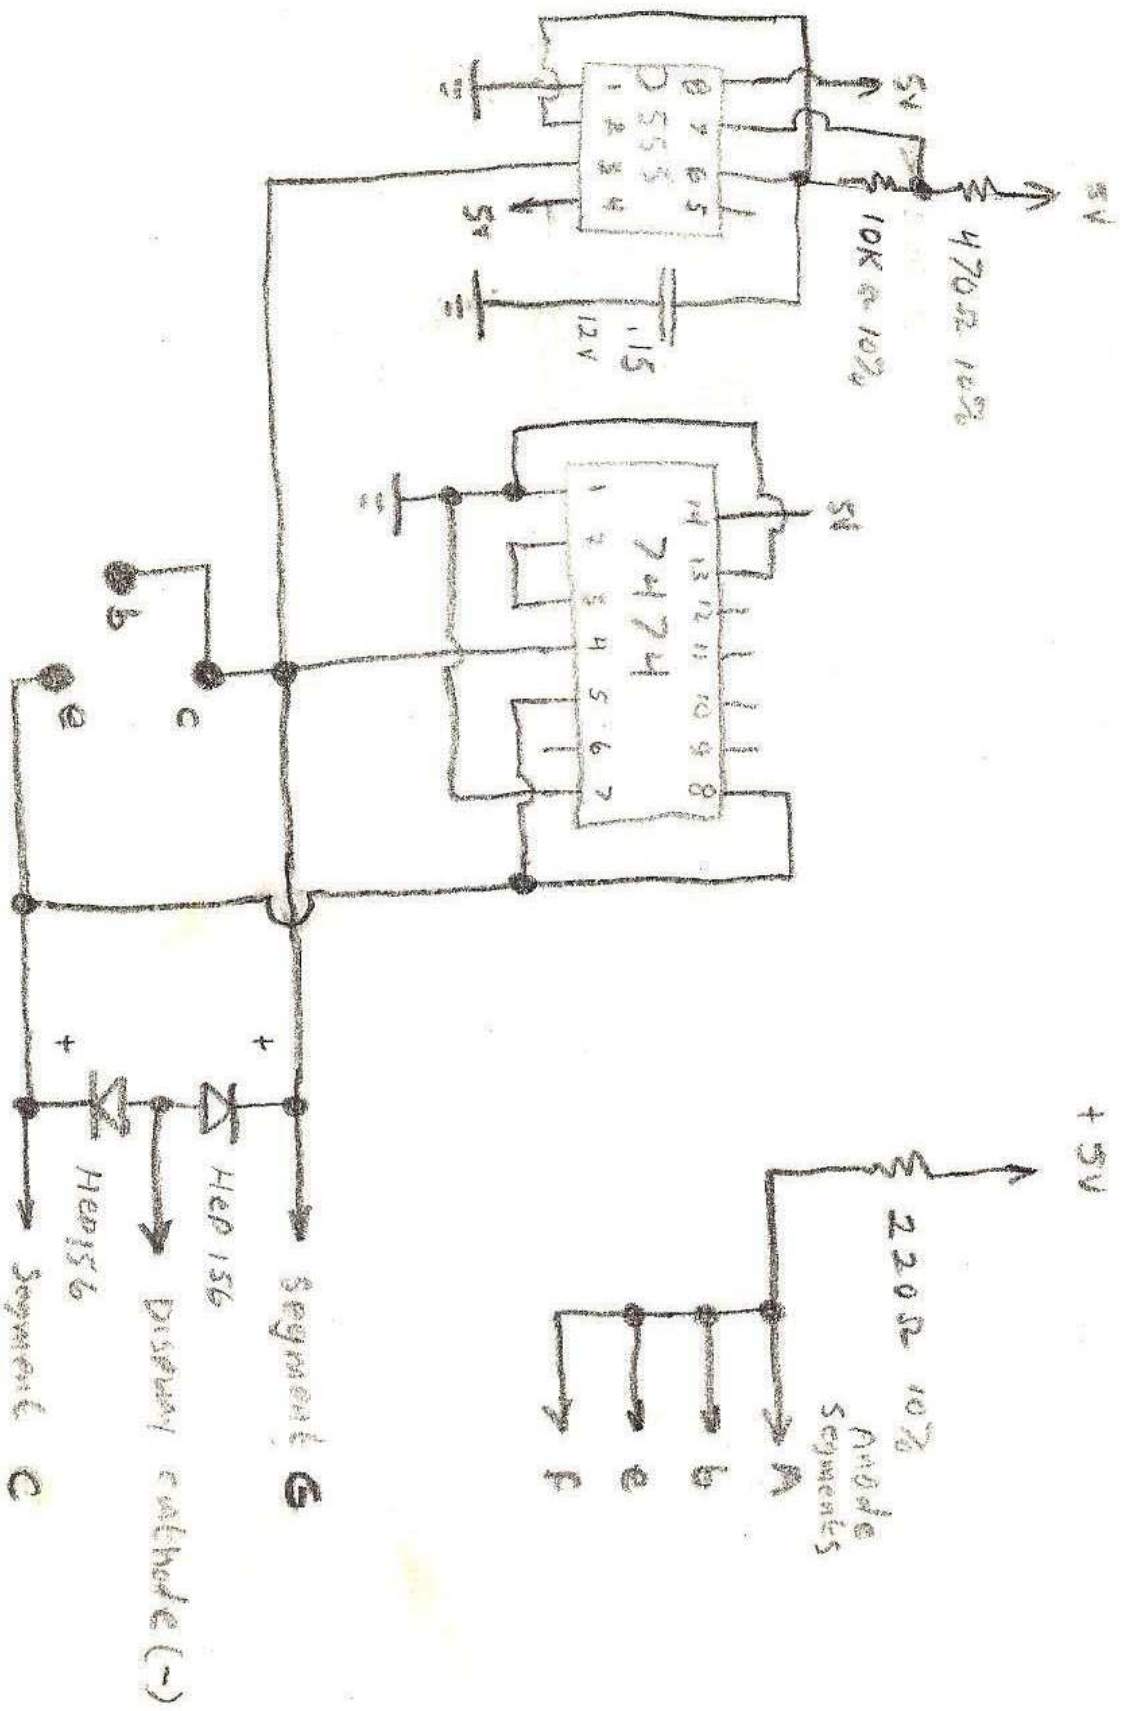 5V
470Ω 10%
10K Ω 10%
5V
8 7 6 5
555
1 2 3 4
5V
.15
12V
5V
14 13 12 11 10 9 8
7474
1 2 3 4 5 6 7
b
c
e
+5V
220Ω 10%
Anode
Segments
A
b
e
F
+
+
HEP 156
HEP156
Segment G
Display cathode (-)
Segment C